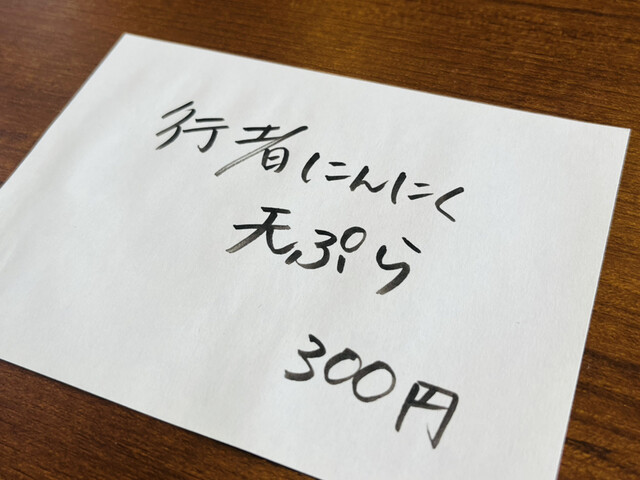 行者にんにく
天ぷら
300円